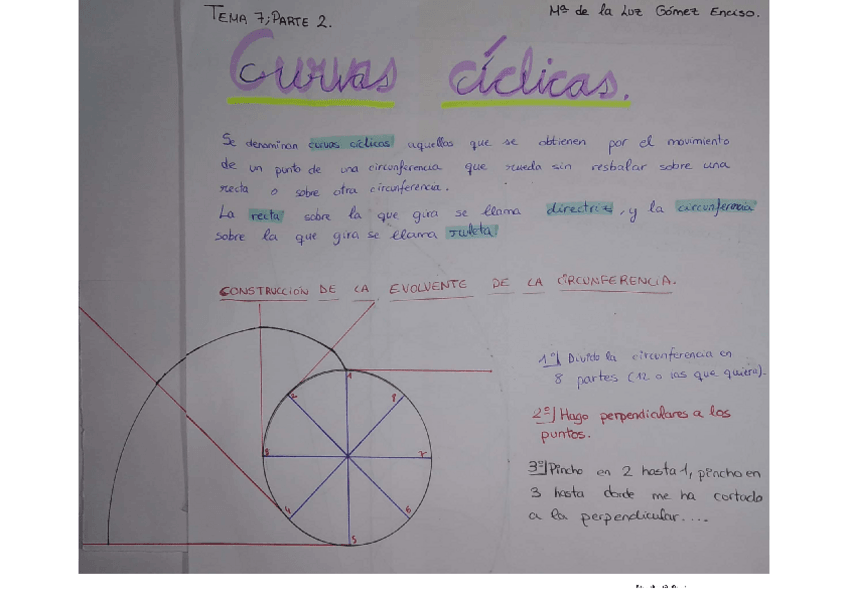 TEMA 7; PARTE 2.
Mª de la Luz Gómez Enciso.
Curvas cíclicas.
Se denominan curvas cíclicas aquellas que se obtienen por el movimiento
de un punto de una circunferencia que rueda sin resbalar sobre una
recta o sobre otra circunferencia.
La recta sobre la que gira se llama directriz, y la circunferencia
sobre la que gira se llama ruleta
CONSTRUCCION DE LA EVOLVENTE DE LA CIRCUNFERENCIA.
1º] Divido la circunferencia en
8 partes (12 o las que quiera).
2º] Hago perpendiculares a los
puntos.
3º] Pincho en 2 hasta 1, pincho en
3 hasta donde me ha cortado
a la perpendicular....
1
2
8
3
7
4
6
5